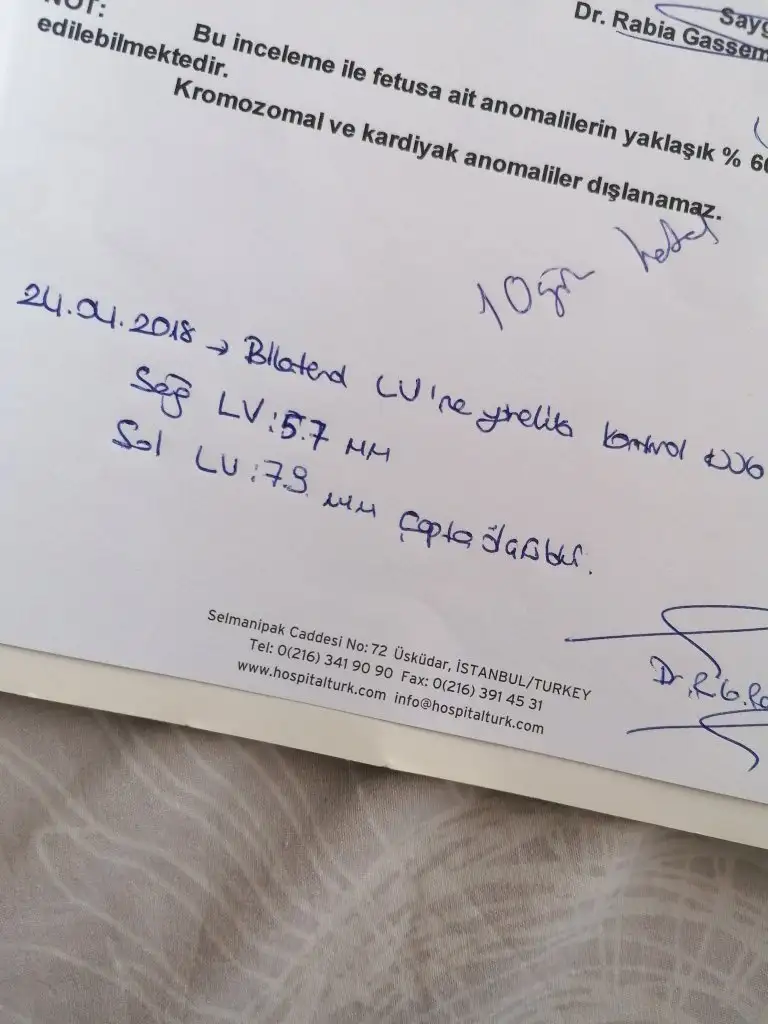 NOT:
Sayg
Dr. Rabia Gassem
Bu inceleme ile fetusa ait anomalilerin yaklaşık % 60
edilebilmektedir.
Kromozomal ve kardiyak anomaliler dışlanamaz.
10 gün
24.04.2018 → Bilateral LV'ne yönelik kontrol
Sağ LV: 5.7 MM
Sol LV: 7.9 MM çapta ölçülmüştür.
Selmanipak Caddesi No: 72 Üsküdar, İSTANBUL/TURKEY
Tel: 0(216) 341 90 90 Fax: 0(216) 391 45 31
www.hospitalturk.com info@hospitalturk.com
Dr. R